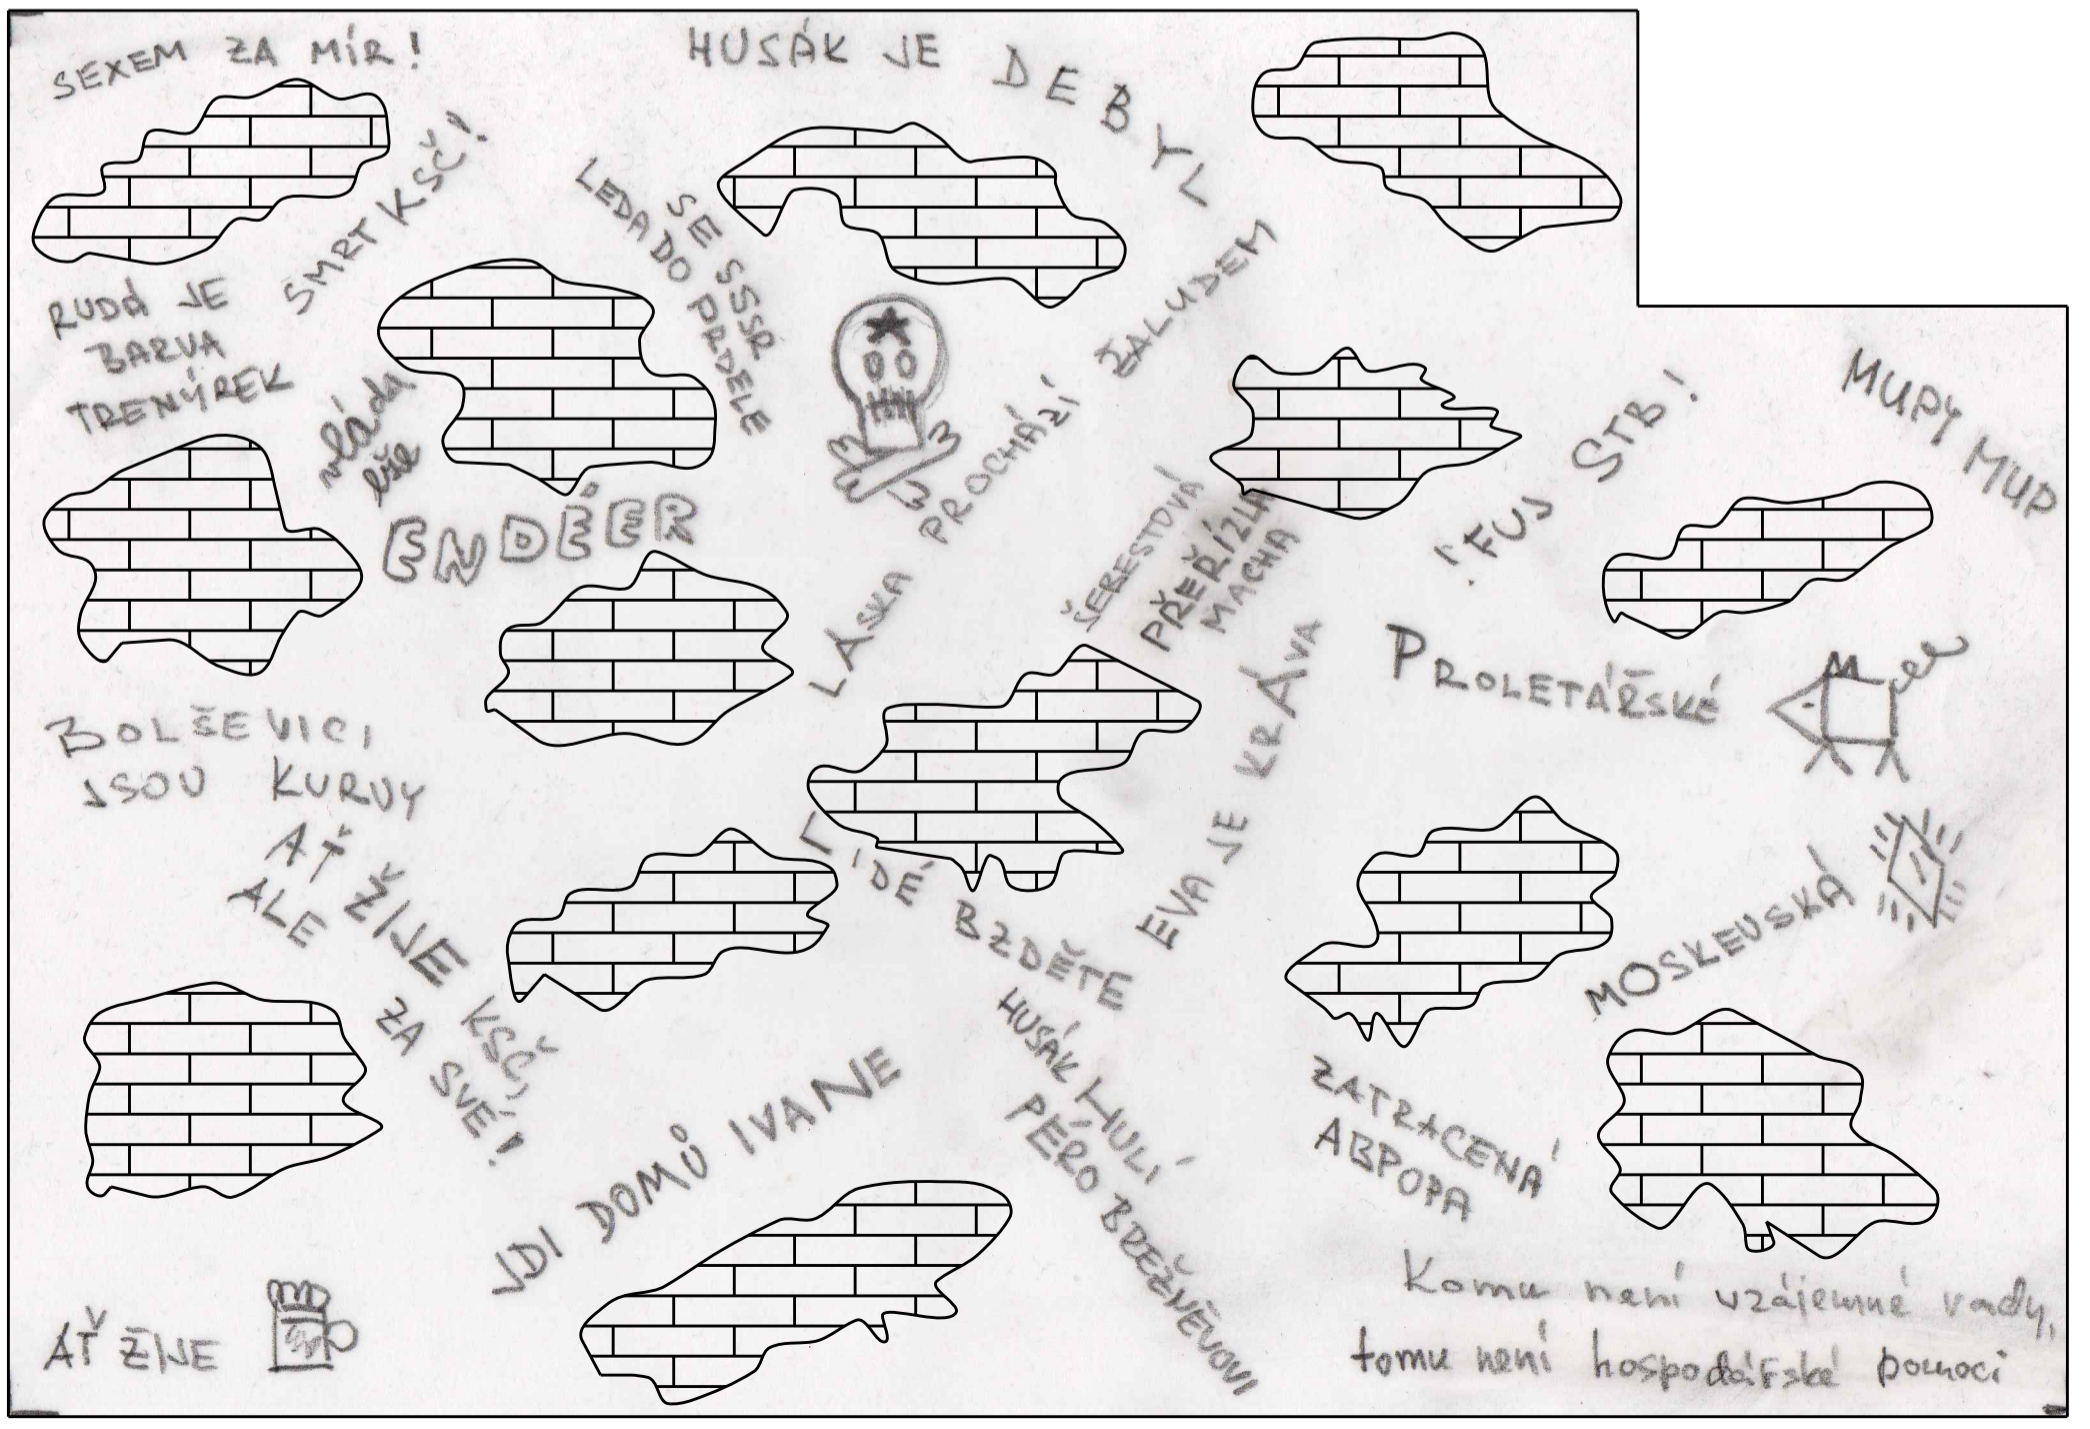 SEXEM ZA MÍR!
HUSÁK JE DEBYL
SMRT KSČ!
SE SSSR
LEDA DO PRDELE
RUDÁ JE
BARVA
TRENÝREK
vláda
lže
ENDÉER
LÁSKA PROCHÁZÍ ŽALUDEM
ŠEBESTOVÁ
PŘEŘÍZLA
MACHA
FUJ STB!
MUPY MUP
PROLETÁŘSKÉ
BOLŠEVICI
JSOU KURVY
AŤ ŽIJE KSČ
ALE ZA SVÉ!
LIDÉ BZDĚTE
EVA JE KRÁVA
MOSKEVSKÁ
HUSÁK HULÍ
PÉRO BREŽNĚVOVI
ZATRACENÁ
ABPOPA
JDI DOMŮ IVANE
AŤ ŽIJE
Komu není vzájemné rady,
tomu není hospodářské pomoci